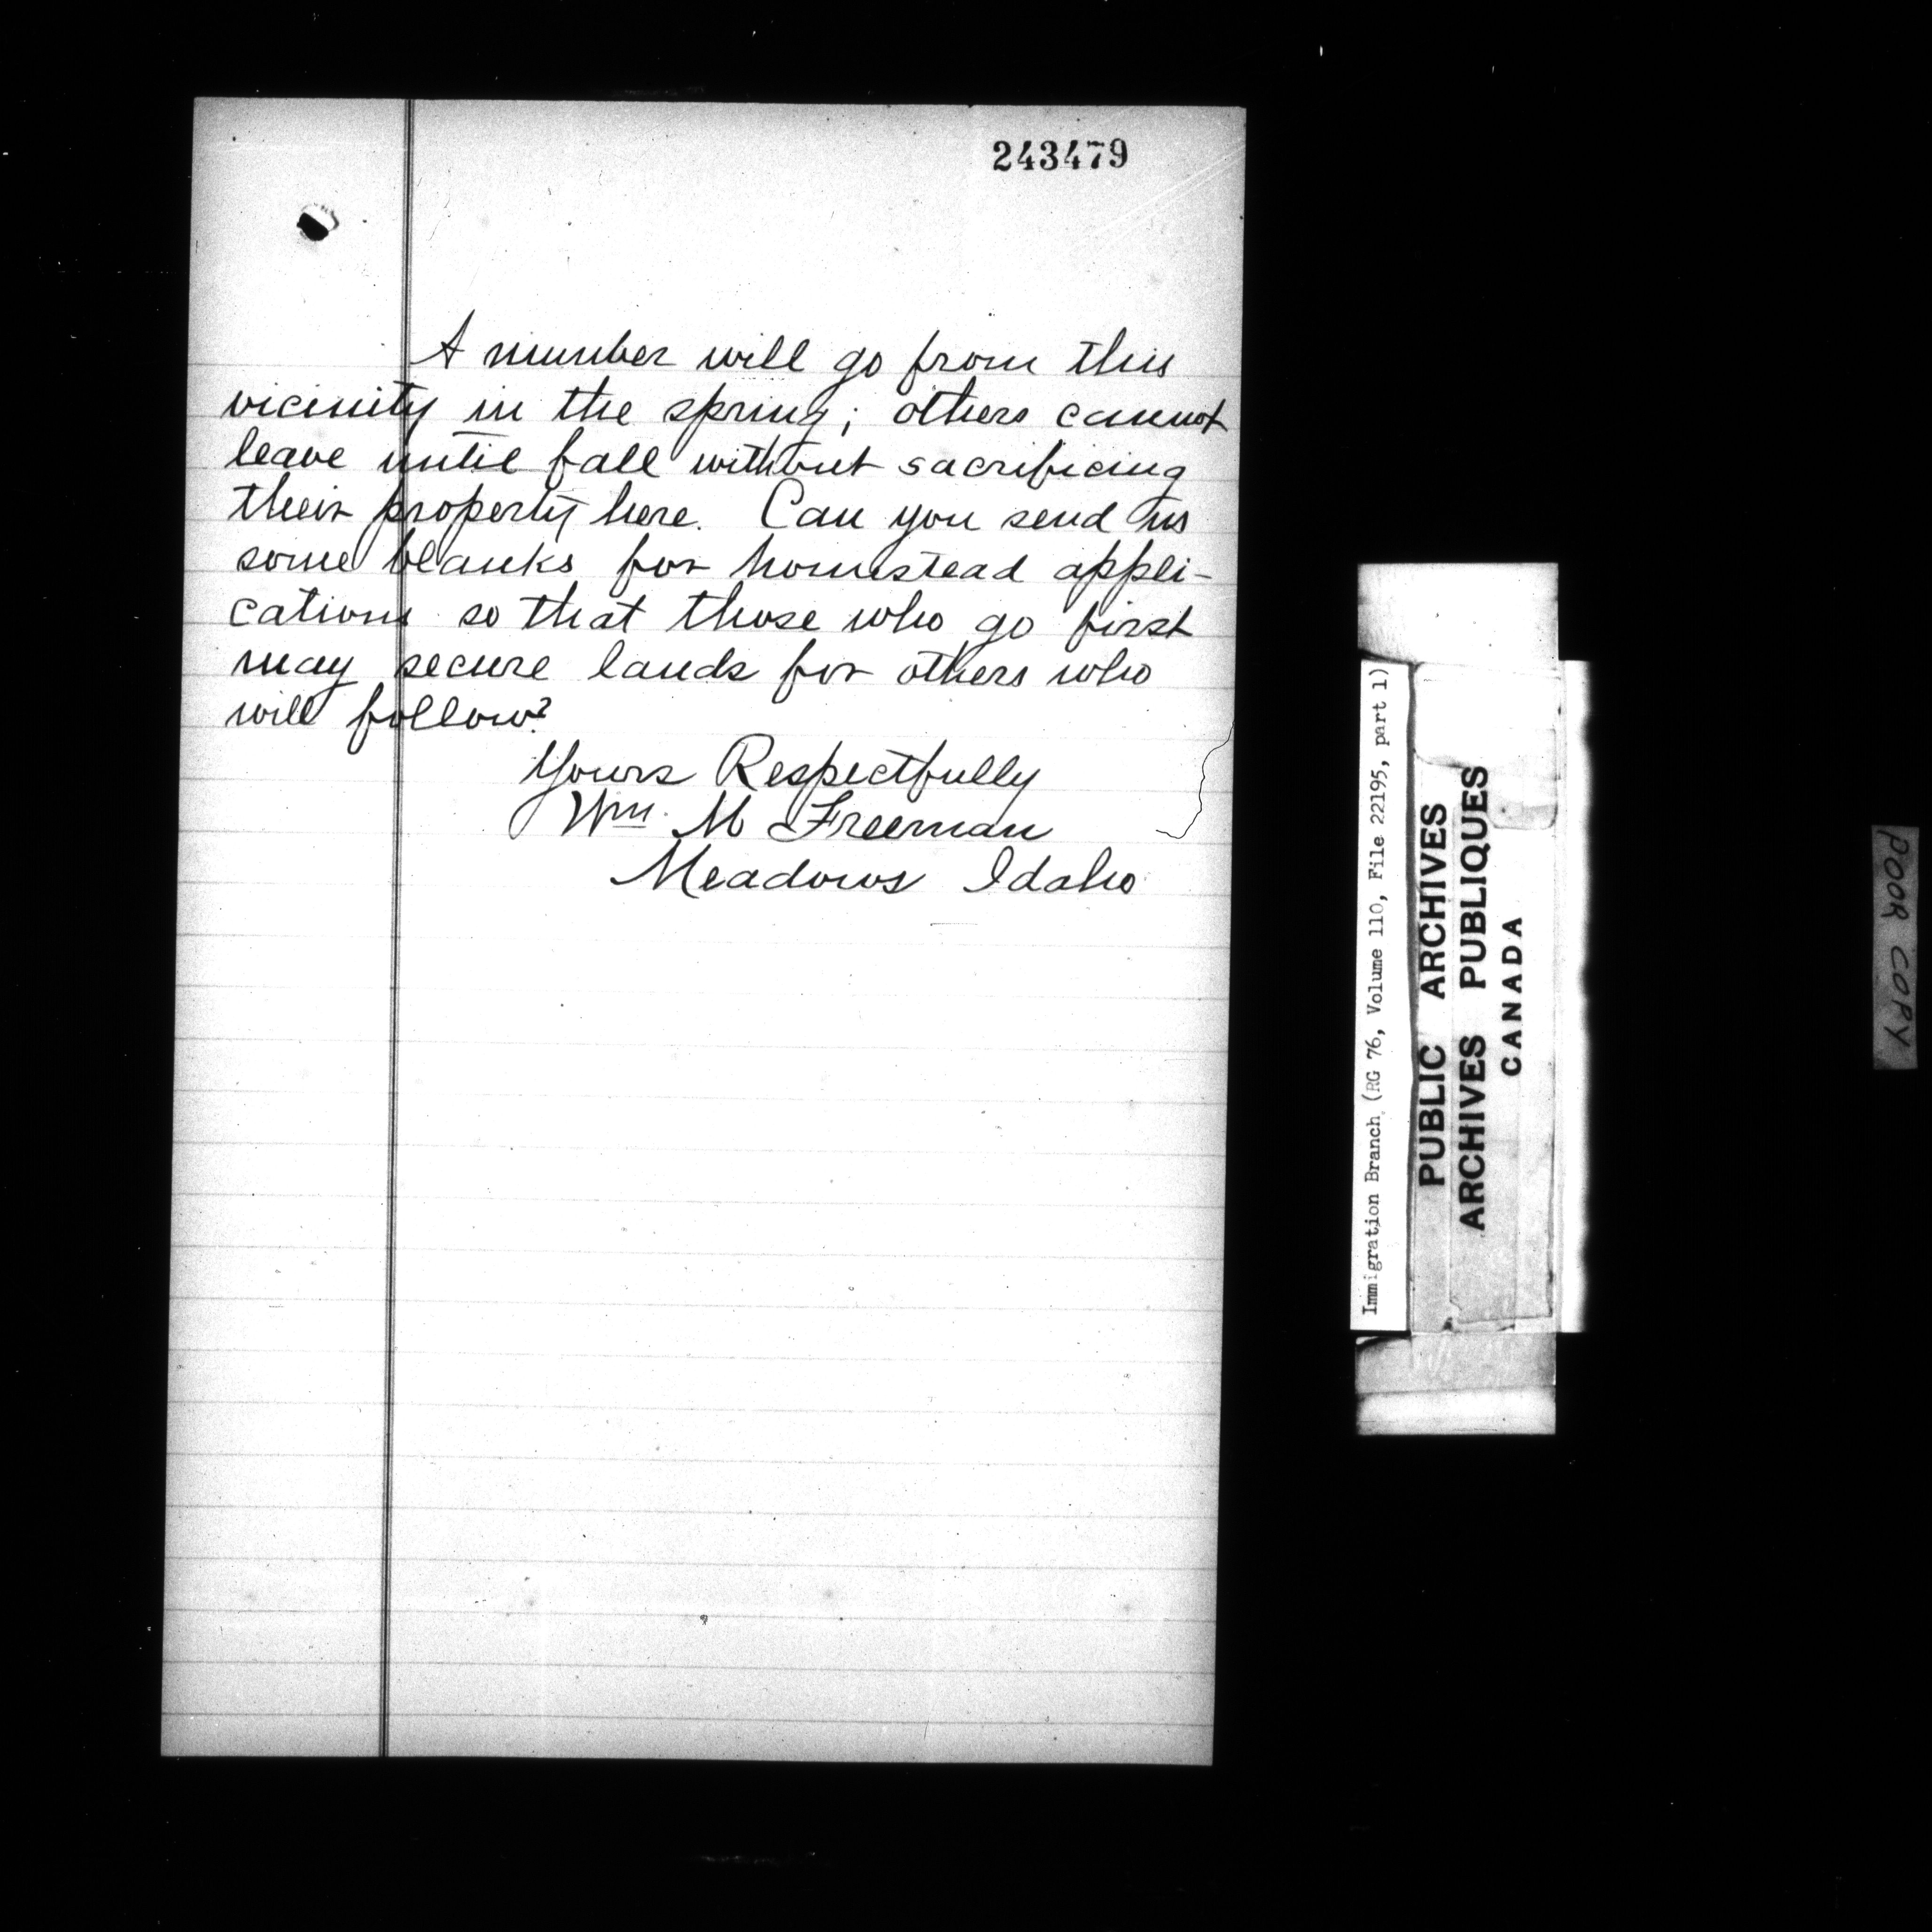 243479
A number will go from this
vicinity in the spring; others cannot
leave until fall without sacrificing
their property here. Can you send us
some blanks for homestead appli-
cations so that those who go first
may secure lands for others who
will follow?
Yours Respectfully
Wm. M Freeman
Meadows Idaho
Immigration Branch (RG 76, Volume 110, File 22195, part 1)
PUBLIC ARCHIVES
ARCHIVES PUBLIQUES
CANADA
POOR COPY